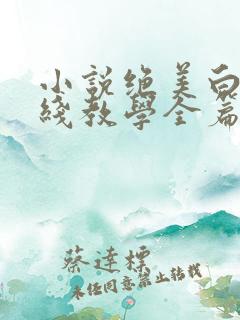 小說絕美白
綫教學全篇
蔡達標
未經同意禁止轉載